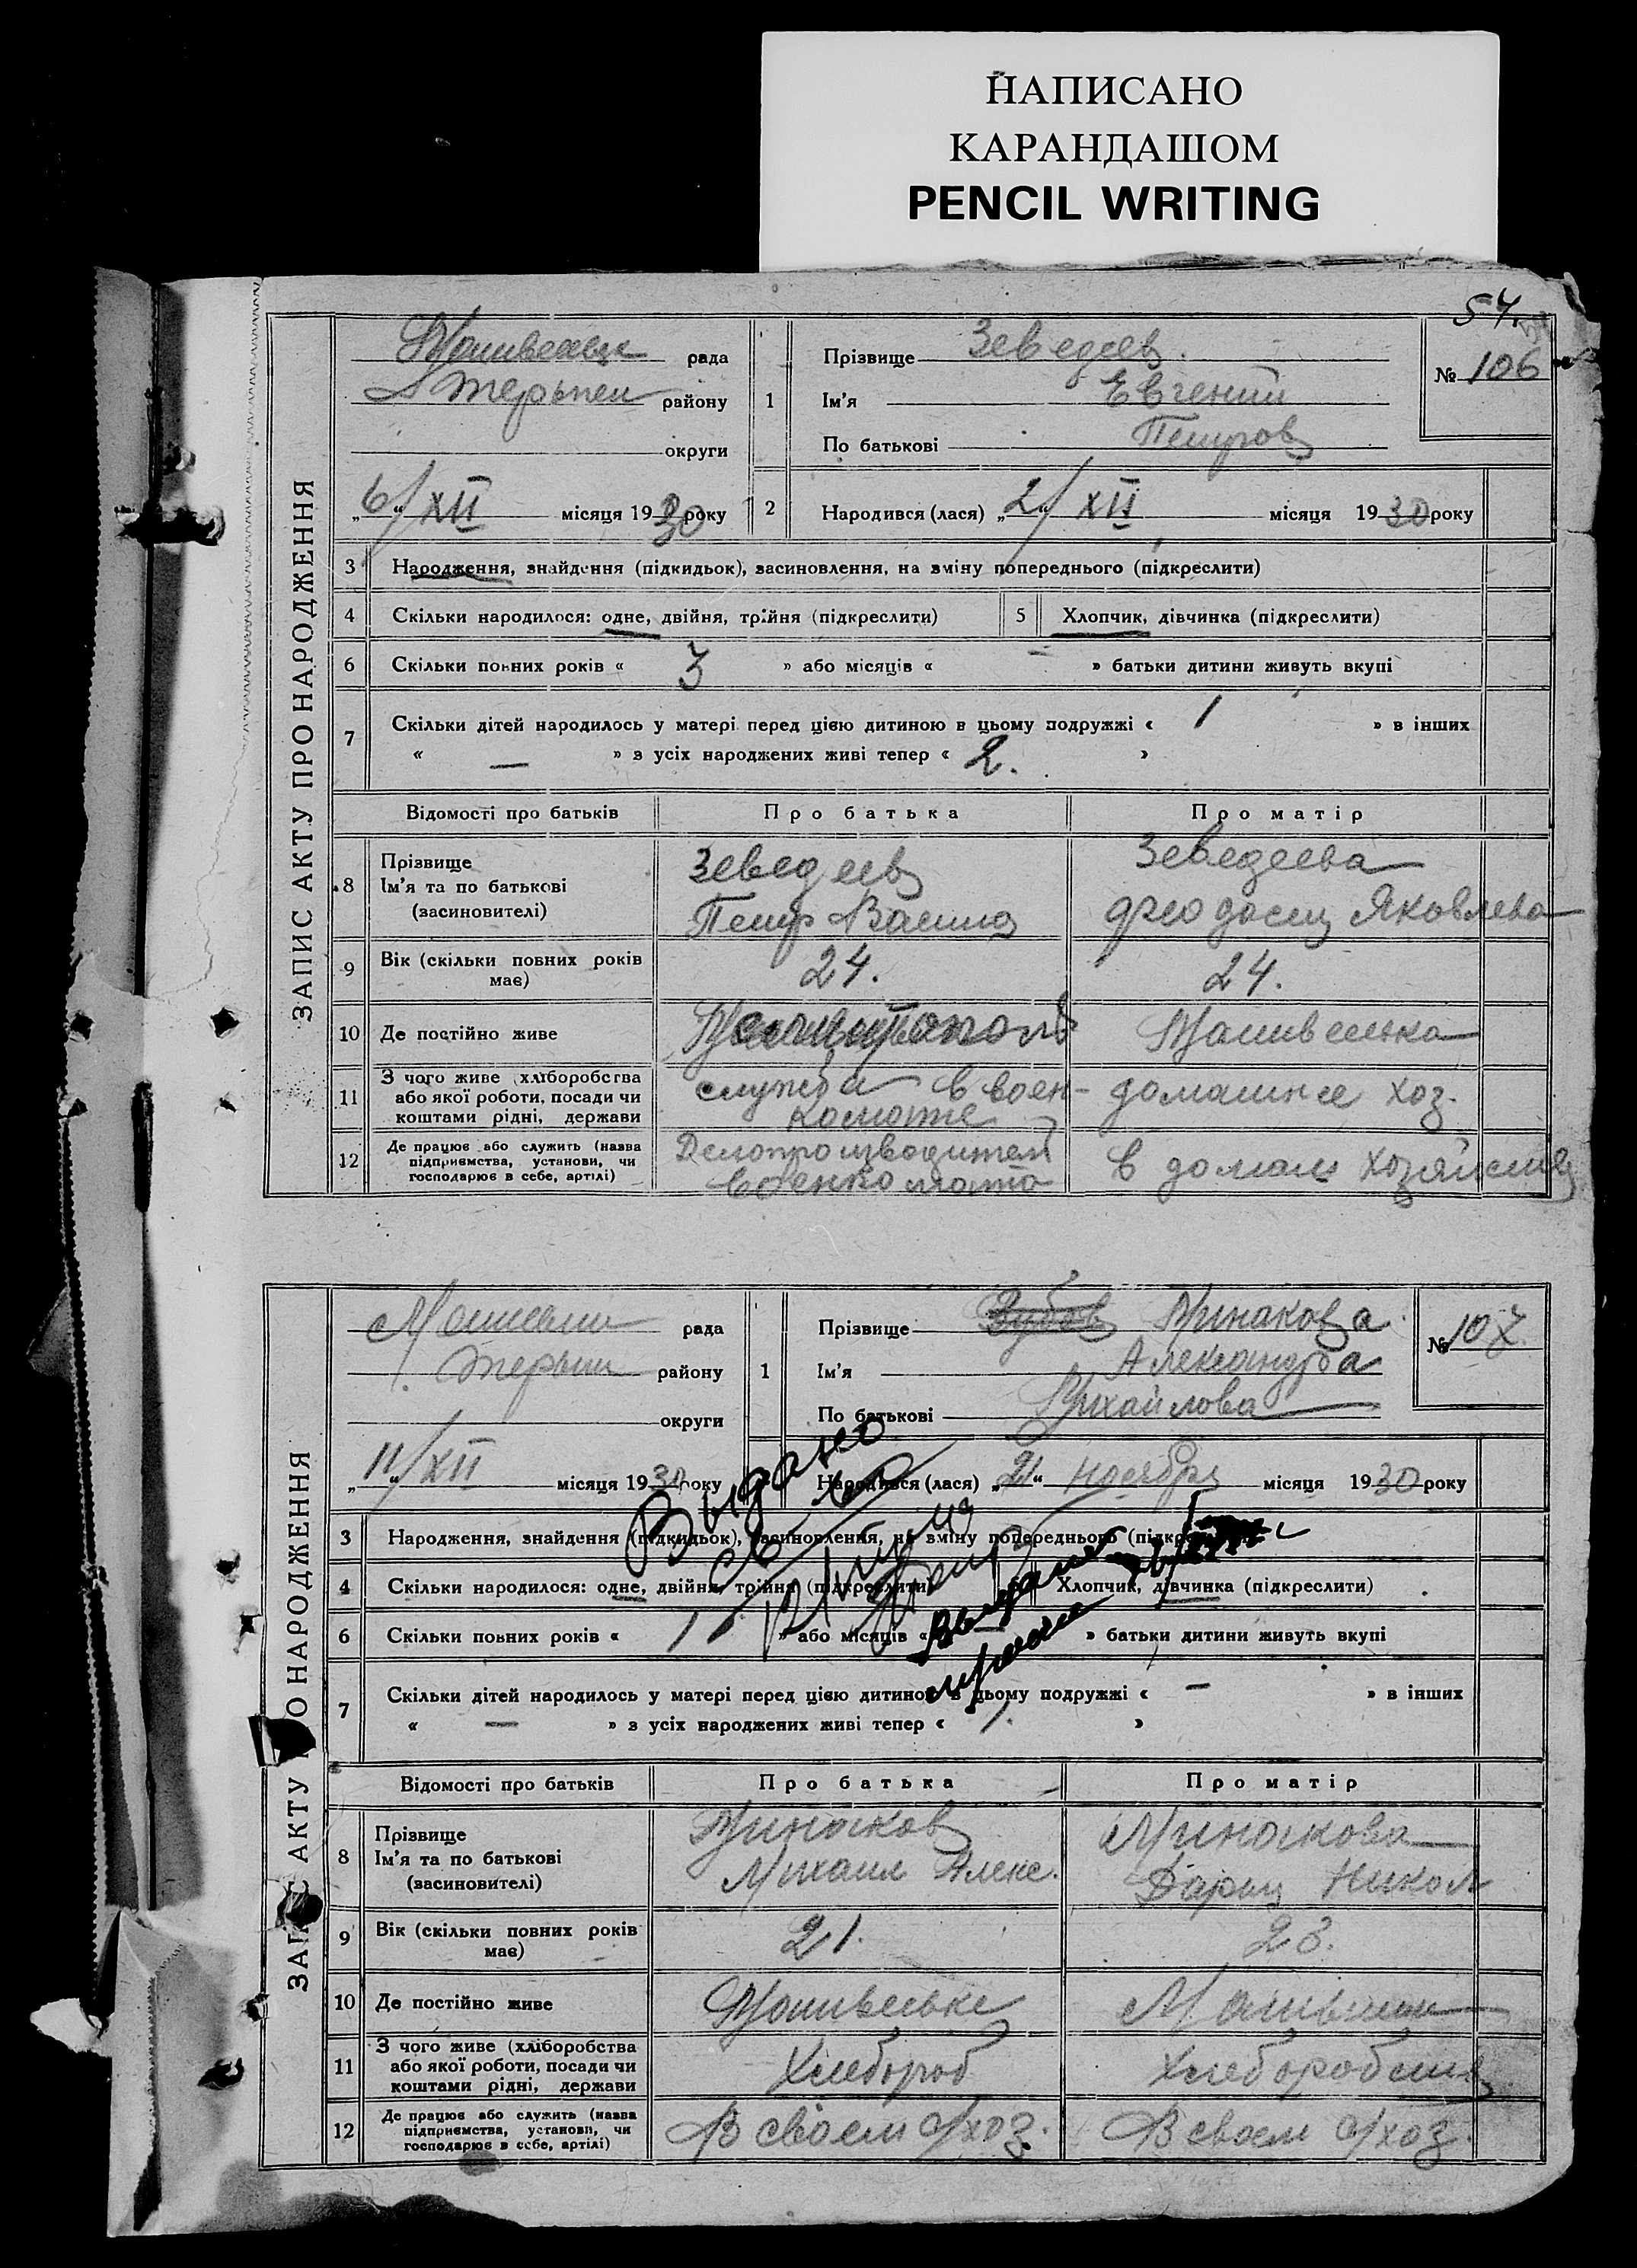 НАПИСАНО
КАРАНДАШОМ
PENCIL WRITING
57.
ЗАПИС АКТУ ПРО НАРОДЖЕННЯ
рада
району
округи
„6“/XII місяця 1930 року
1
Прізвище Зеведеев.
Ім'я Евгений
По батькові Петров
№ 106
2 Народився (лася) „2“/XII місяця 1930 року
3 Народження, знайдення (підкидьок), засиновлення, на зміну попереднього (підкреслити)
4 Скільки народилося: одне, двійня, трійня (підкреслити) 5 Хлопчик, дівчинка (підкреслити)
6 Скільки повних років « 3 » або місяців « — » батьки дитини живуть вкупі
7 Скільки дітей народилось у матері перед цією дитиною в цьому подружжі « 1 » в інших
« — » з усіх народжених живі тепер « 2. »
Відомості про батьків Про батька Про матір
8 Прізвище
Ім'я та по батькові
(засиновителі)
Зеведеев
Петр Васил
Зеведеева
Феодосия Яковлева
9 Вік (скільки повних років має) 24. 24.
10 Де постійно живе
11 З чого живе (хліборобства
або якої роботи, посади чи
коштами рідні, держави
служба в воен-
комате
домашнее хоз.
12 Де працює або служить (назва
підприємства, установи, чи
господарює в себе, артілі)
Делопроизводител
военкомата
в домаш хозяйстве
ЗАПИС АКТУ ПРО НАРОДЖЕННЯ
рада
району
округи
„11“/XII місяця 1930 року
1
Прізвище Минакова
Ім'я Александра
По батькові Михайлова
№ 107
Народився (лася) „21“ ноября місяця 1930 року
Выдано
3 Народження, знайдення (підкидьок), засиновлення, на зміну попереднього (підкреслити)
4 Скільки народилося: одне, двійня, трійня (підкреслити) Хлопчик, дівчинка (підкреслити)
6 Скільки повних років « 1 » або місяців « » батьки дитини живуть вкупі
7 Скільки дітей народилось у матері перед цією дитиною в цьому подружжі « — » в інших
« — » з усіх народжених живі тепер « 1. »
Відомості про батьків Про батька Про матір
8 Прізвище
Ім'я та по батькові
(засиновителі)
Минаков
Михаил Алекс.
Минакова
Дария Никол
9 Вік (скільки повних років має) 21. 23.
10 Де постійно живе
11 З чого живе (хліборобства
або якої роботи, посади чи
коштами рідні, держави
Хлебороб
12 Де працює або служить (назва
підприємства, установи, чи
господарює в себе, артілі)
В своем с/хоз.
В своем с/хоз.